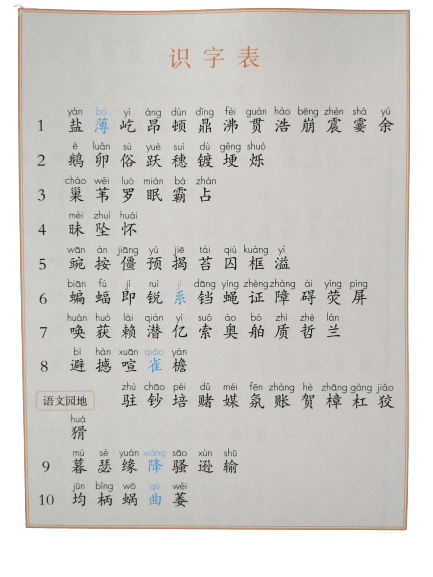 识字表
yán bó yì áng dùn dǐng fèi guàn hào bēng zhèn shà yú
1 盐 薄 屹 昂 顿 鼎 沸 贯 浩 崩 震 霎 余
é luǎn sú yuè suì dù gěng shuò
2 鹅 卵 俗 跃 穗 镀 埂 烁
cháo wěi luó mián bà zhàn
3 巢 苇 罗 眠 霸 占
mèi zhuì huái
4 昧 坠 怀
wān àn jiāng yù jiē tái qiú kuàng yì
5 豌 按 僵 预 揭 苔 囚 框 溢
biān fú jí ruì jì dāng yíng zhèng zhàng ài yíng píng
6 蝙 蝠 即 锐 系 铛 蝇 证 障 碍 荧 屏
huàn huò lài qián yì suǒ ào bó zhì zhé lán
7 唤 获 赖 潜 亿 索 奥 舶 质 哲 兰
bì hàn xuān qiāo yán
8 避 撼 喧 雀 檐
zhù chāo péi dǔ méi fēn zhàng hè zhāng gàng jiǎo
语文园地 驻 钞 培 赌 媒 氛 账 贺 樟 杠 狡
huá
猾
mù sè yuán xiáng sāo xùn shū
9 暮 瑟 缘 降 骚 逊 输
jūn bǐng wō qū wěi
10 均 柄 蜗 曲 萎